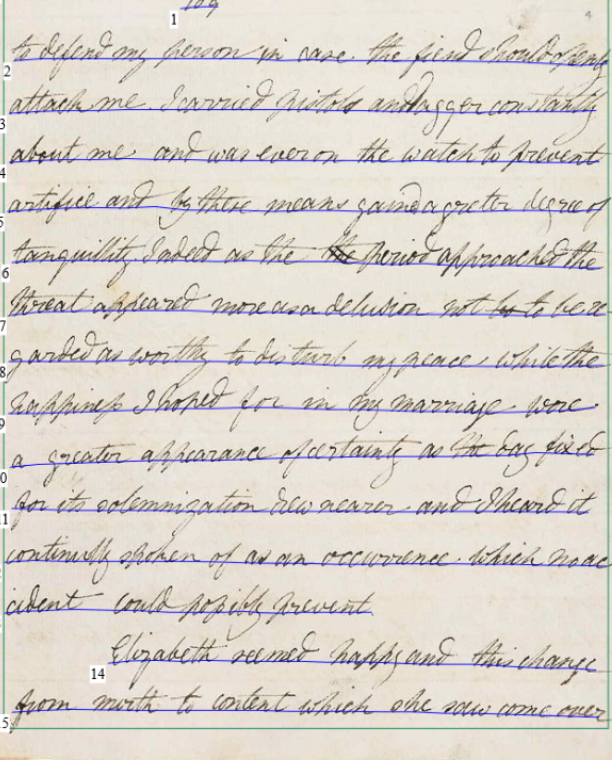 109
to defend my person in case the fiend should openly
attack me. I carried pistols and dagger constantly
about me and was ever on the watch to prevent
artifice and by these means gained a greater degree of
tanquillity. Indeed as the the period approached the
threat appeared more as a delusion not be to be re-
garded as worthy to disturb my peace, while the
happiness I hoped for in my marriage wore
a greater appearance of certainty as the day fixed
for its solemnization drew nearer and I heard it
continually spoken of as an occurrence which no ac
cident could possibly prevent
Elizabeth seemed happy and this change
from mirth to content which she saw come over